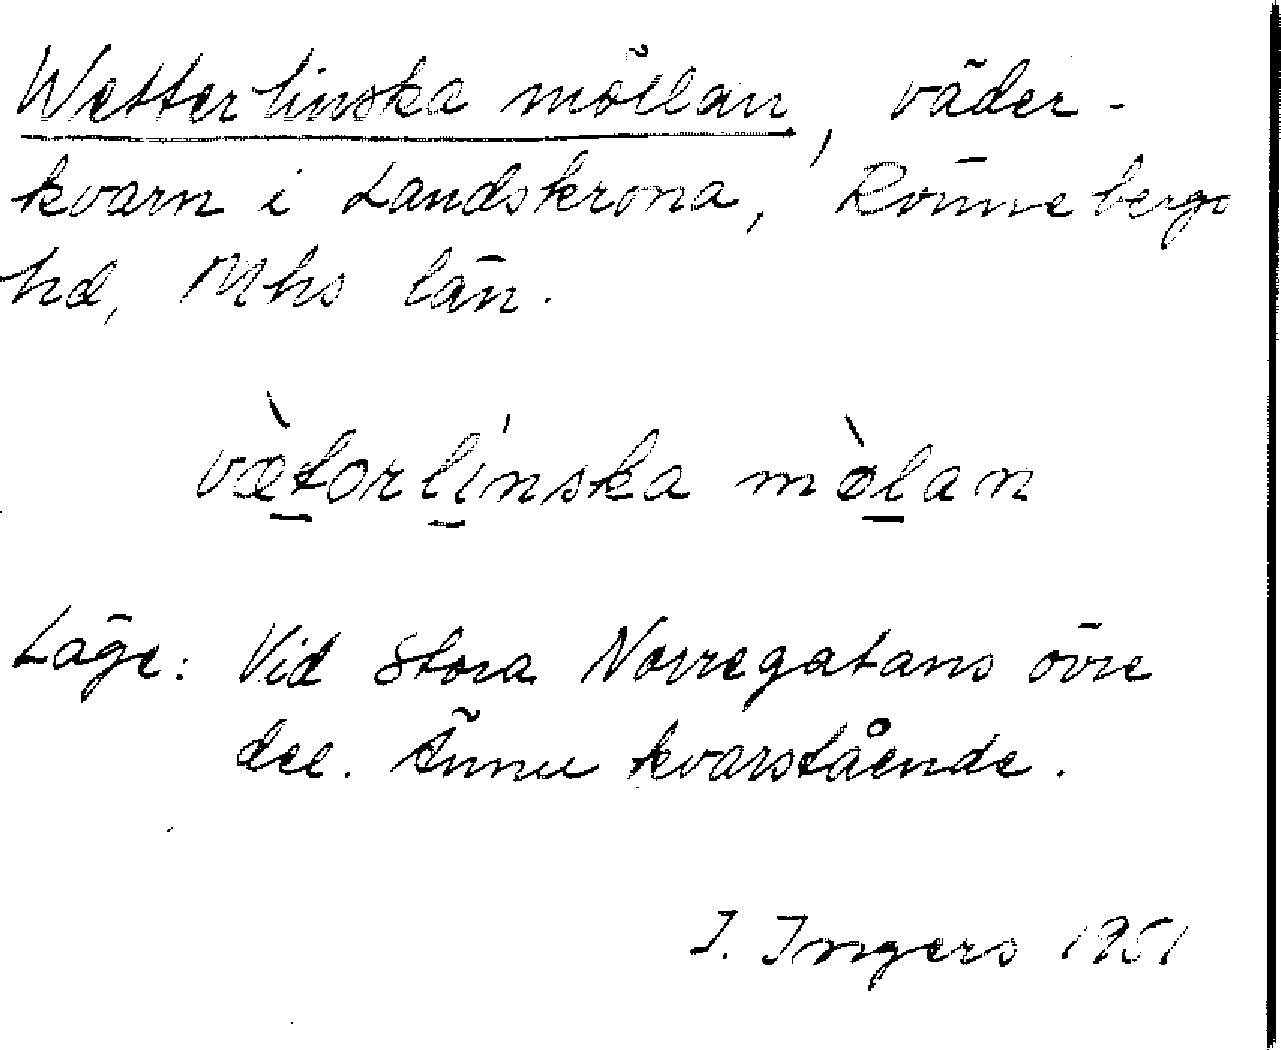 Wetterlinska möllan, väder-
kvarn i Landskrona, Rönnebergs
hd, Mhs län.
vætorlínska mòlan
Läge: Vid Stora Norregatans övre
del. Ännu kvarstående.
I. Ingers 1951